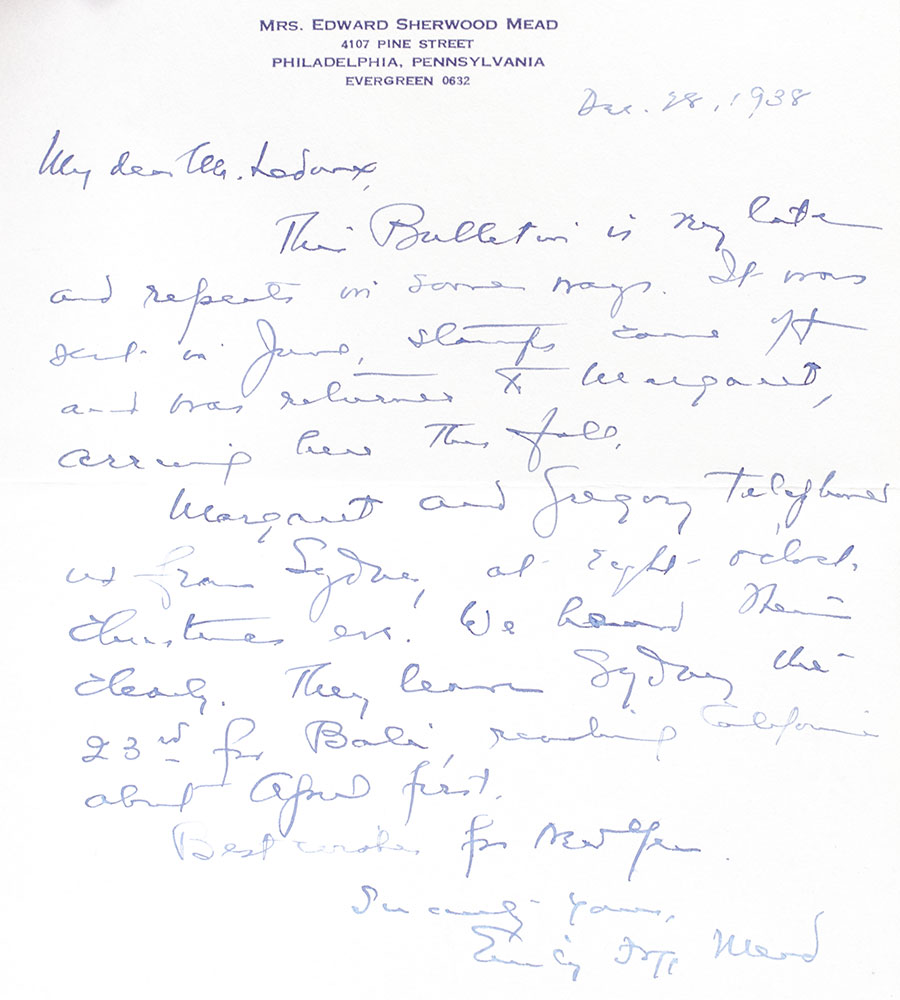 MRS. EDWARD SHERWOOD MEAD
4107 PINE STREET
PHILADELPHIA, PENNSYLVANIA
EVERGREEN 0632
Dec. 28, 1938
My dear Mr. Ledoux,
This Bulletin is very late
and repeats in some ways. It was
sent in June, stamps came off
and was returned to Margaret,
arriving here this fall.
Margaret and Gregory telephoned
us from Sydney, at eight o'clock
Christmas eve. We heard them
clearly. They leave Sydney the
23rd for Bali, reaching California
about April first.
Best wishes for New Year.
Sincerely yours,
Emily Fogg Mead